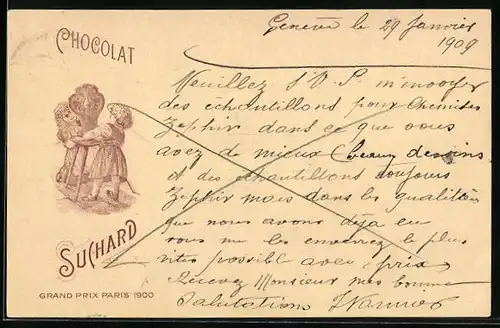 CHOCOLAT
SUCHARD
GRAND PRIX PARIS 1900
Genève le 29 Janvier
1909
Veuillez S.V.P. m'envoyer
des échantillons pour chemises
Zephir dans ce que vous
avez de mieux (beaux dessins
et des échantillons toujours
Zephir mais dans les qualitées
que nous avons déja eu
vous me les enverrez le plus
vites possible avec prix
Recevez Monsieur mes bonne
Salutations